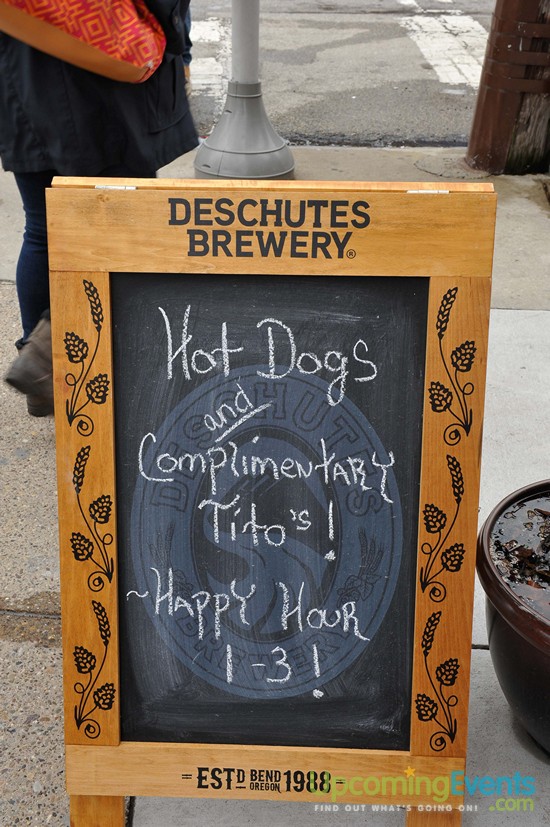 DESCHUTES
BREWERY®
Hot Dogs
and
Complimentary
Tito's!
~Happy Hour
1-3!
DESCHUTES
BREWERY
=EST'D BEND OREGON 1988=
UpcomingEvents
.com
FIND OUT WHAT'S GOING ON!